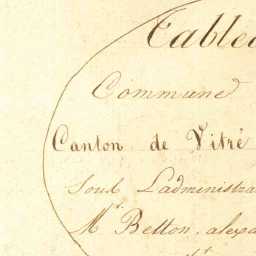 Tablea
Commune
Canton de Vitré
Sous L'administra
Mr. Betton, alexa